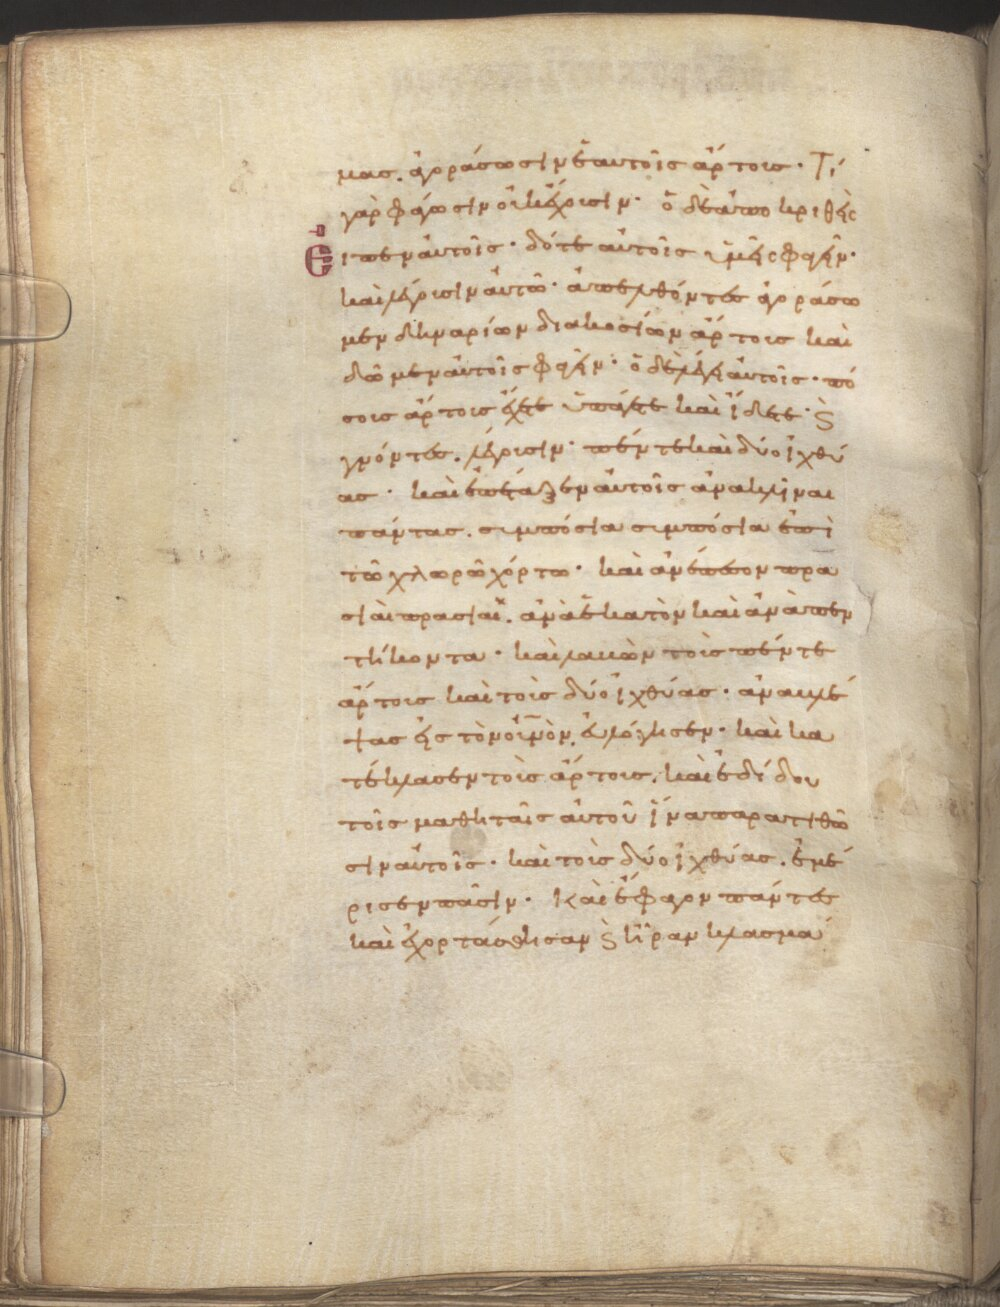 μας. ἀγοράσωσιν ἑαυτοῖς ἄρτους· Τί
γὰρ φάγωσιν οὐκ ἔχουσιν· ὁ δὲ ἀποκριθεὶς
εἶπεν αὐτοῖς· δότε αὐτοῖς ὑμεῖς φαγεῖν·
καὶ λέγουσιν αὐτῶ· ἀπελθόντες ἀγοράσω
μεν δηναρίων διακοσίων ἄρτους καὶ
δῶμεν αὐτοῖς φαγεῖν· ὁ δὲ λέγει αὐτοῖς· πό
σους ἄρτους ἔχετε ὑπάγετε καὶ ἴδετε· ϗ
γνόντες. λέγουσιν· πέντε καὶ δύο ἰχθύ
ας· καὶ ἐπέταξεν αὐτοῖς ἀνακλῖναι
πάντας. συμπόσια συμπόσια ἐπὶ
τῶ χλωρῶ χόρτω· καὶ ἀνέπεσον πρα
σιαὶ πρασιαί. ἀνὰ ἑκατὸν καὶ ἀνὰ πεν
τήκοντα· καὶ λαβὼν τοὺς πέντε
ἄρτους καὶ τοὺς δύο ἰχθύας· ἀναβλέ
ψας εἰς τὸν οὐνὸν, εὐλόγησεν· καὶ κα
τέκλασεν τοὺς ἄρτους, καὶ ἐδίδου
τοῖς μαθηταῖς αὐτοῦ ἵνα παρατιθῶ
σιν αὐτοῖς· καὶ τοὺς δύο ἰχθύας. ἐμέ
ρισεν πᾶσιν· Καὶ ἔφαγον πάντες
καὶ ἐχορτάσθησαν ϗ ἦραν κλασμά